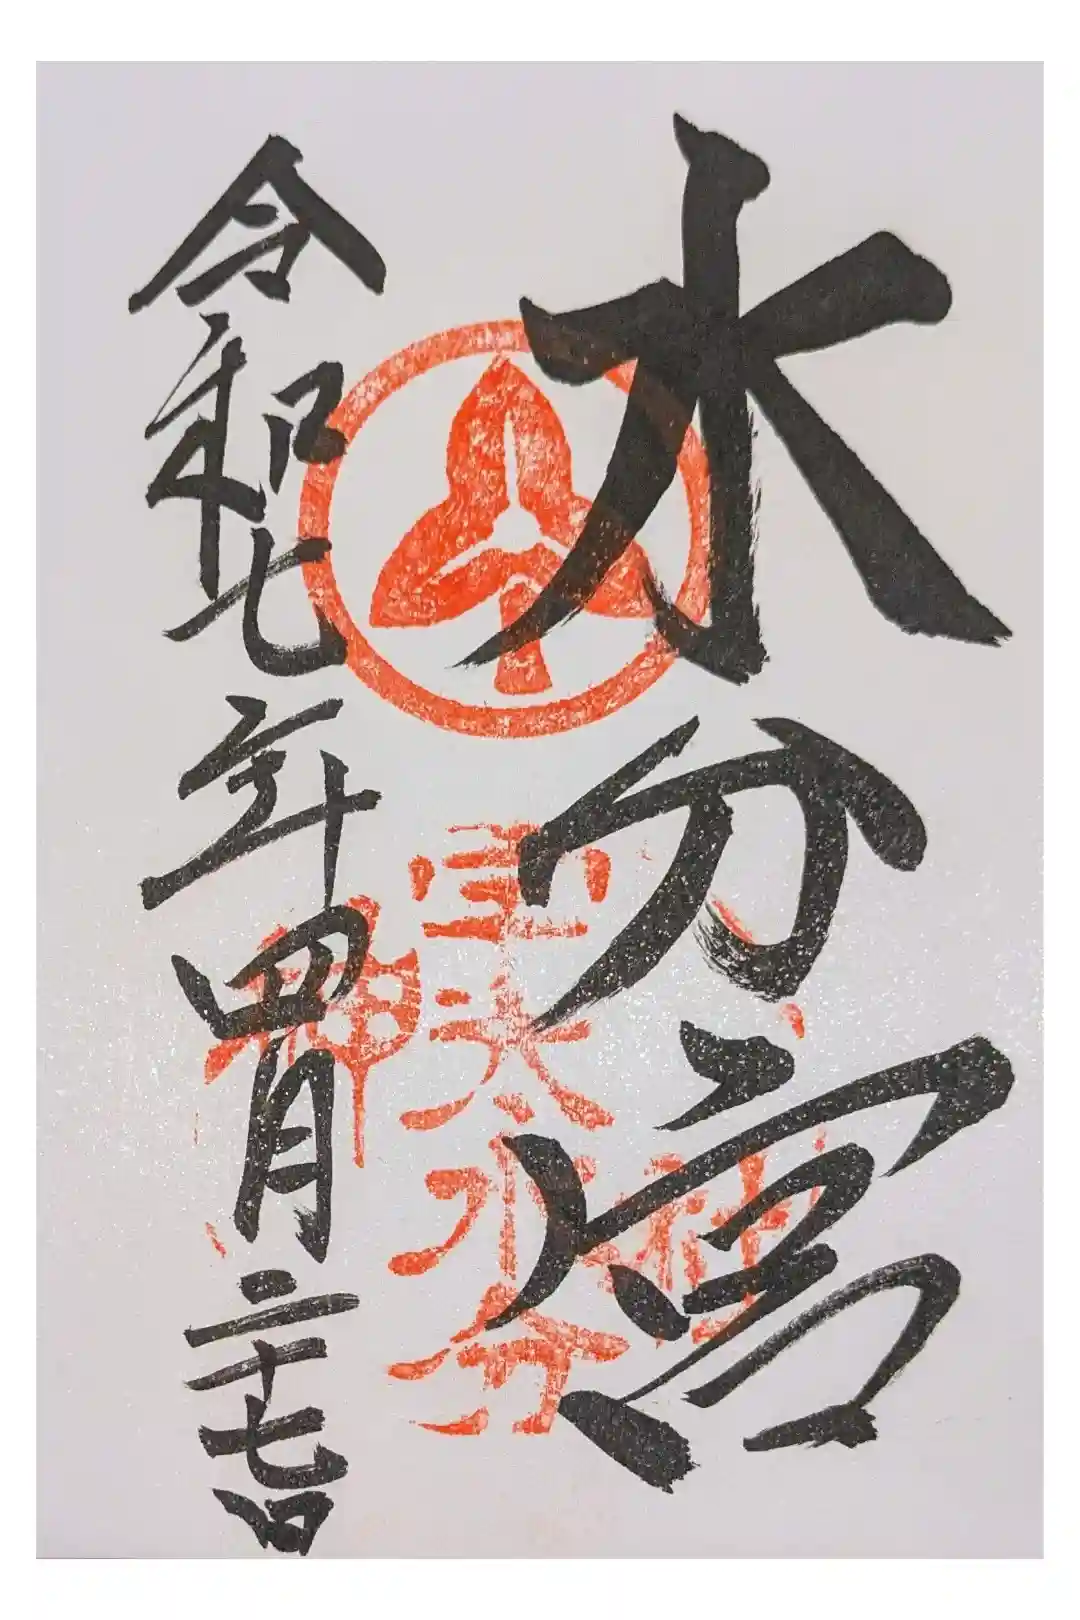 水分宮
宇太水分
神社
令和七年四月二十七日